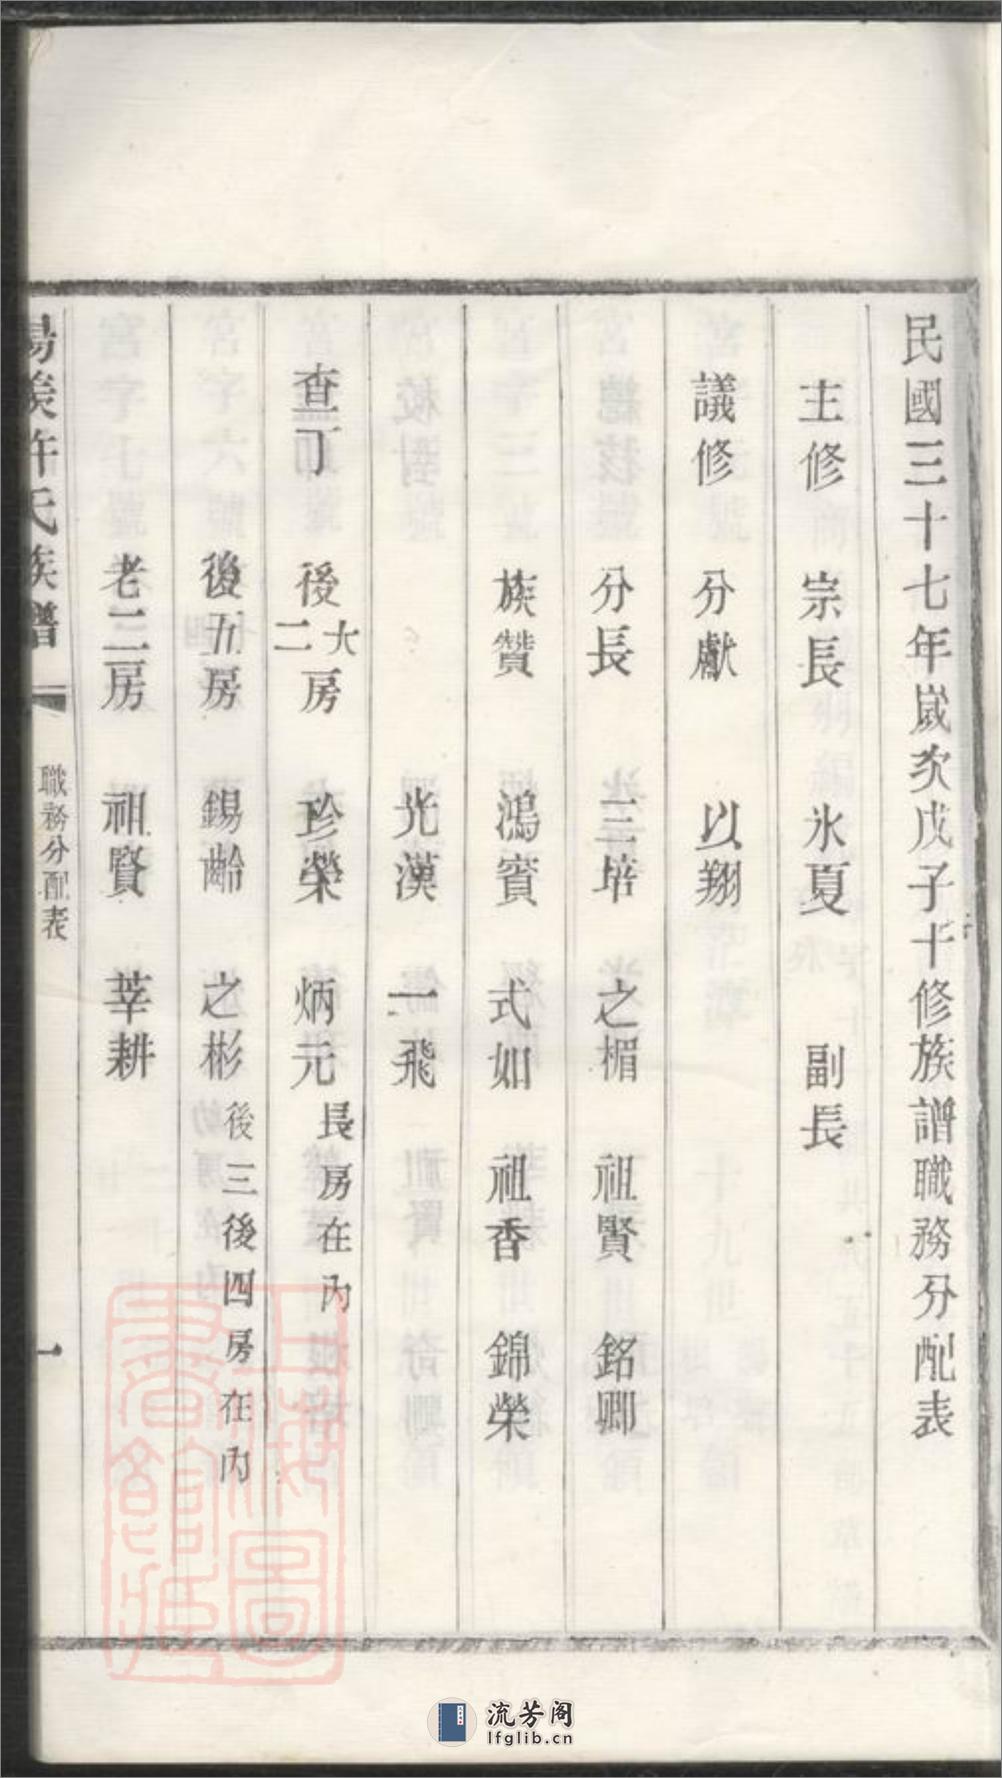 民國三十七年嵗次戊子十修族譜職務分配表
主修 宗長 氷夏 副長
議修 分獻 以翔
分長 三培 之楣 祖賢 銘卿
族贊 鴻賓 式如 祖香 錦榮
光漢 一飛
查丁 後大二房 珍榮 炳元 長房在內
後五房 錫齡 之彬 後三後四房在內
老二房 祖賢 莘耕
許氏族譜
職務分配表
一
上海圖書館藏
流芳阁
lfglib.cn